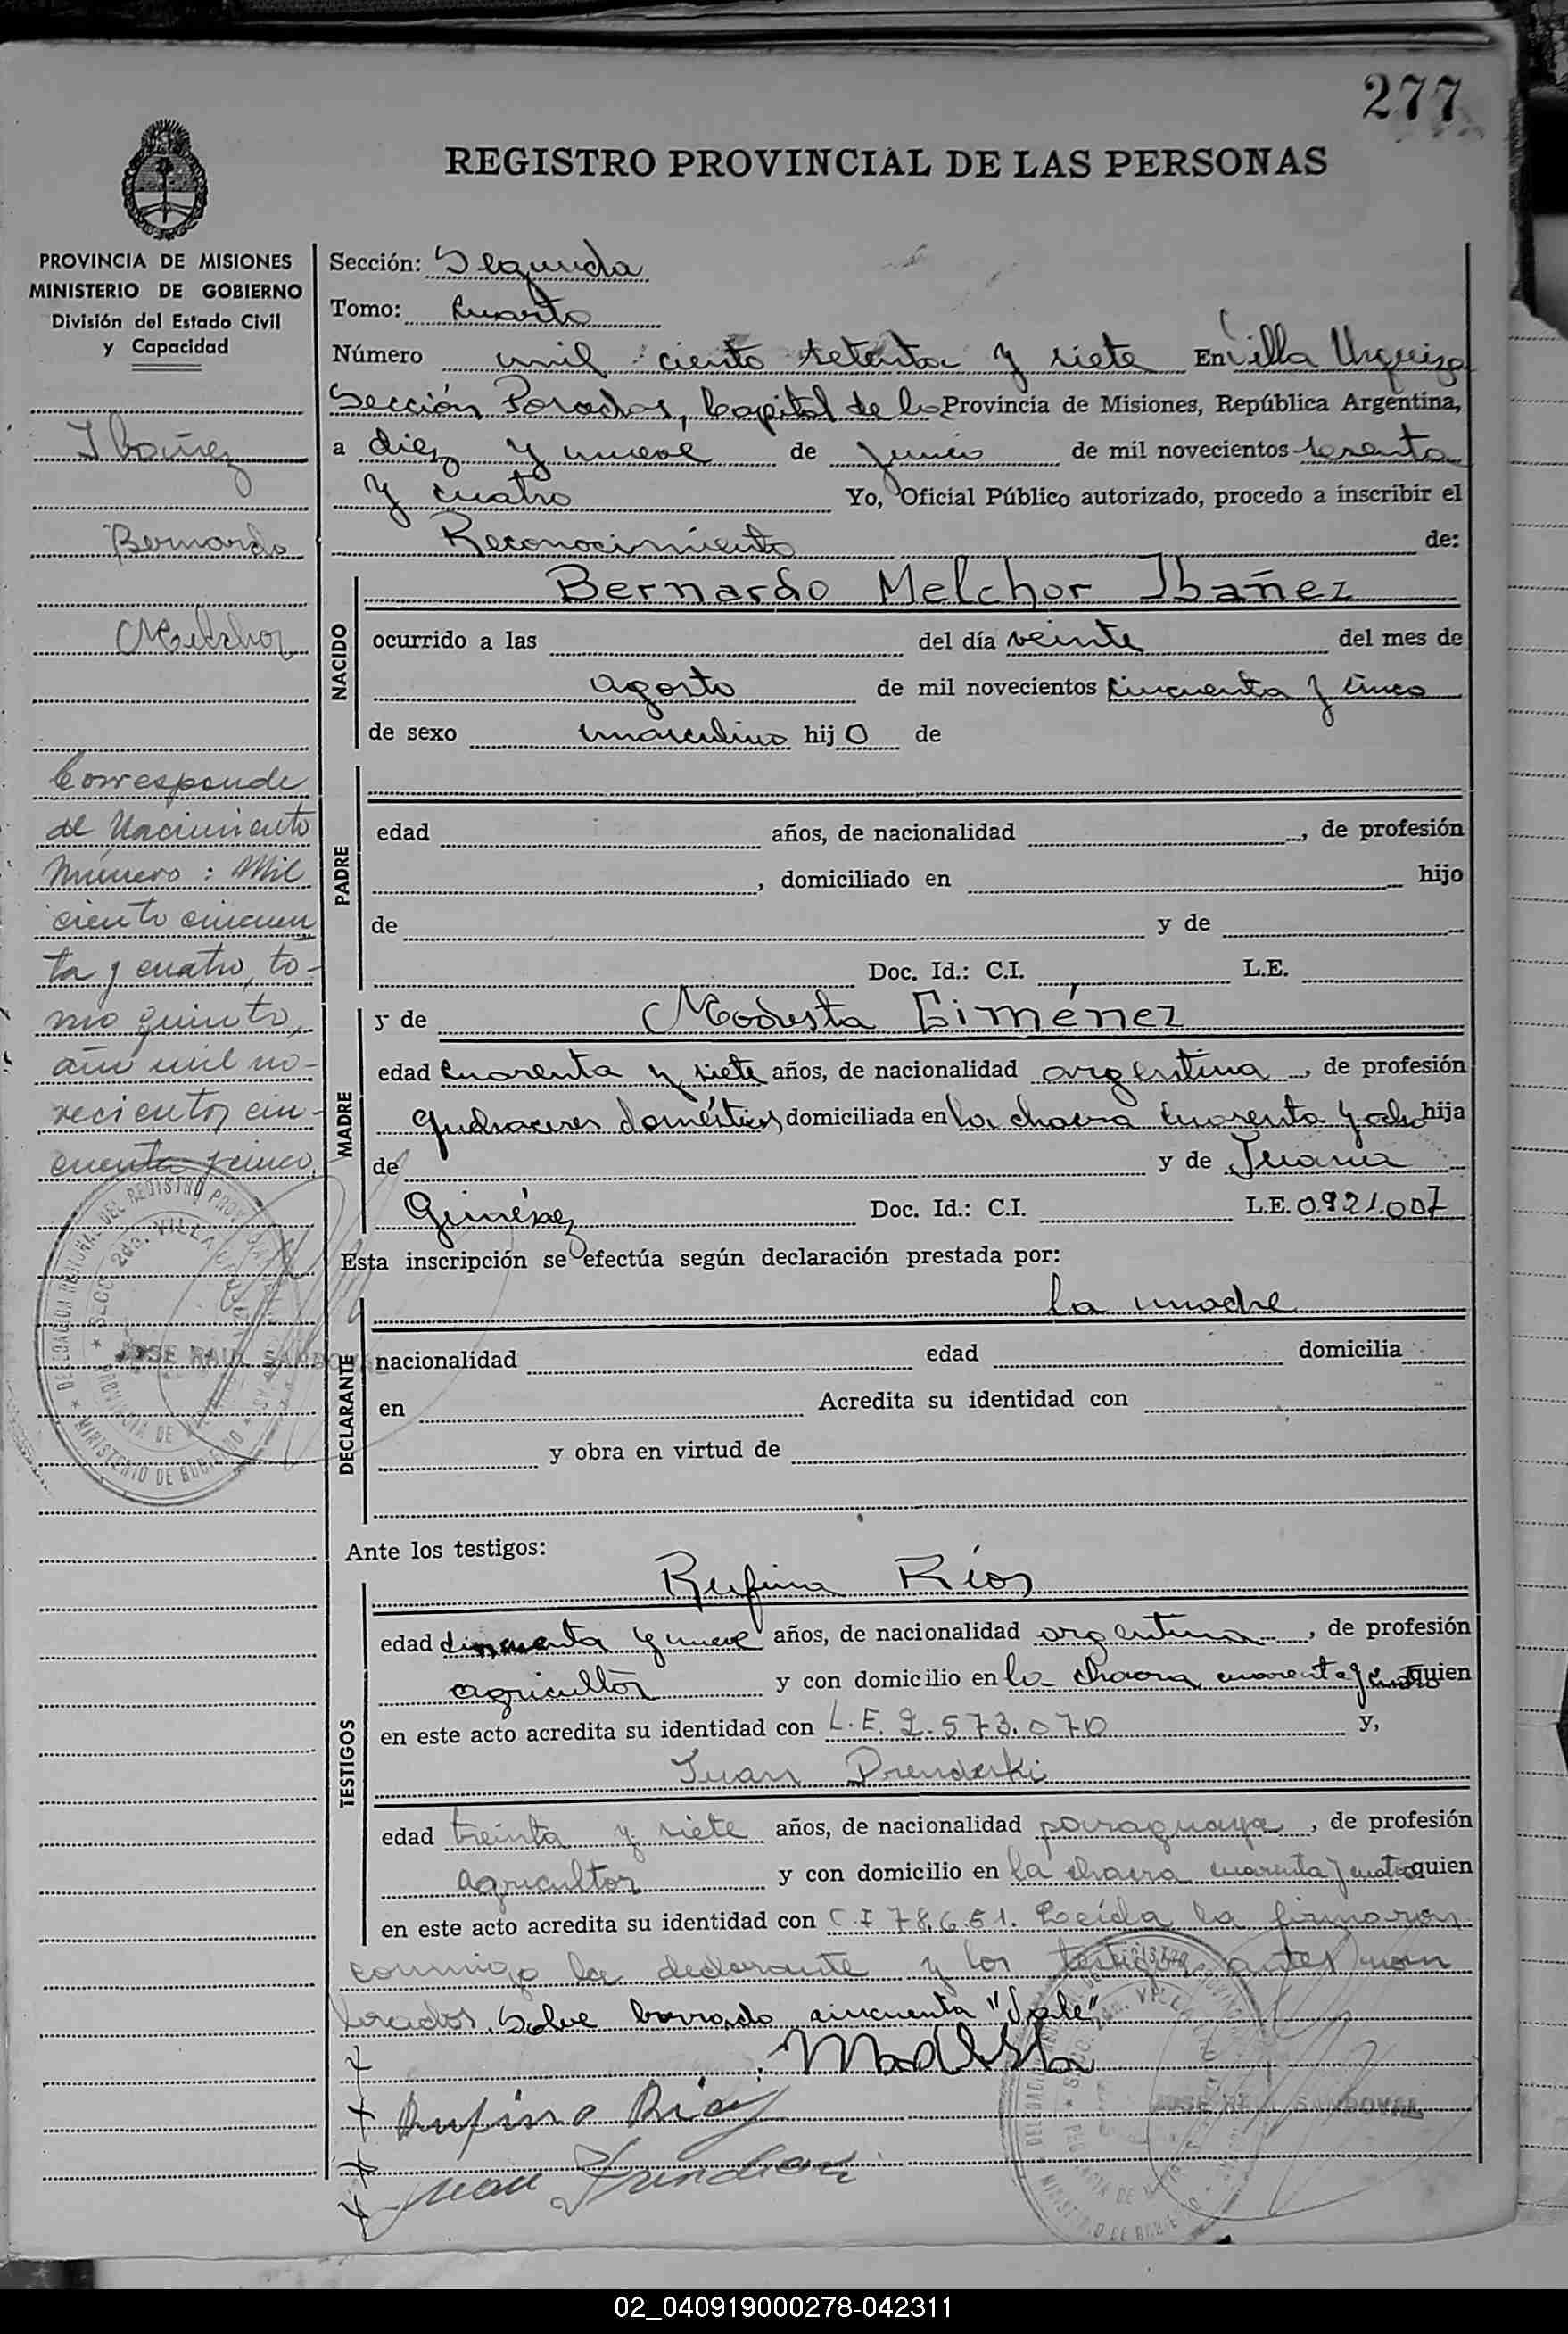 277
REGISTRO PROVINCIAL DE LAS PERSONAS
PROVINCIA DE MISIONES
MINISTERIO DE GOBIERNO
División del Estado Civil
y Capacidad
Ibañez
Bernardo
Melchor
Corresponde
al Nacimiento
Número: Mil
ciento cincuen
ta y cuatro, to-
mo quinto,
año mil no-
vecientos cin-
cuenta y cinco.
Sección: Segunda
Tomo: Cuarto
Número mil ciento setenta y siete En Villa Urquiza
Sección Posadas, Capital de la Provincia de Misiones, República Argentina,
a diez y nueve de junio de mil novecientos sesenta
y cuatro Yo, Oficial Público autorizado, procedo a inscribir el
Reconocimiento de:
NACIDO
Bernardo Melchor Ibañez
ocurrido a las del día veinte del mes de
agosto de mil novecientos cincuenta y cinco
de sexo masculino hijo de
PADRE
edad años, de nacionalidad , de profesión
, domiciliado en hijo
de y de
Doc. Id.: C.I. L.E.
MADRE
y de Modesta Giménez
edad cuarenta y siete años, de nacionalidad argentina , de profesión
quehaceres domésticos domiciliada en la chacra cuarenta y ocho hija
de y de Juana
Giménez Doc. Id.: C.I. L.E. 0.921.007
Esta inscripción se efectúa según declaración prestada por:
DECLARANTE
la madre
nacionalidad edad domicilia
en Acredita su identidad con
y obra en virtud de
Ante los testigos:
TESTIGOS
Rufino Ríos
edad cincuenta y nueve años, de nacionalidad argentina , de profesión
agricultor y con domicilio en la chacra cuarenta y cuatro quien
en este acto acredita su identidad con L.E. 2.573.070 y,
Juan Drenderki
edad treinta y siete años, de nacionalidad paraguaya , de profesión
agricultor y con domicilio en la chacra cuarenta y cuatro quien
en este acto acredita su identidad con C.I 78.651. Leída la firmaron
conmigo la declarante y los testigos antes nom
brados. Sobre borrado cincuenta "Vale"
Modesta
Rufino Rios
Juan
DELEGACION REGIONAL DEL REGISTRO PROVINCIAL
SECC. 2da. VILLA URQUIZA
PROVINCIA DE MISIONES
MINISTERIO DE GOBIERNO
JOSE RAUL SANDOVAL
JOSE RAUL SANDOVAL
02_040919000278-042311